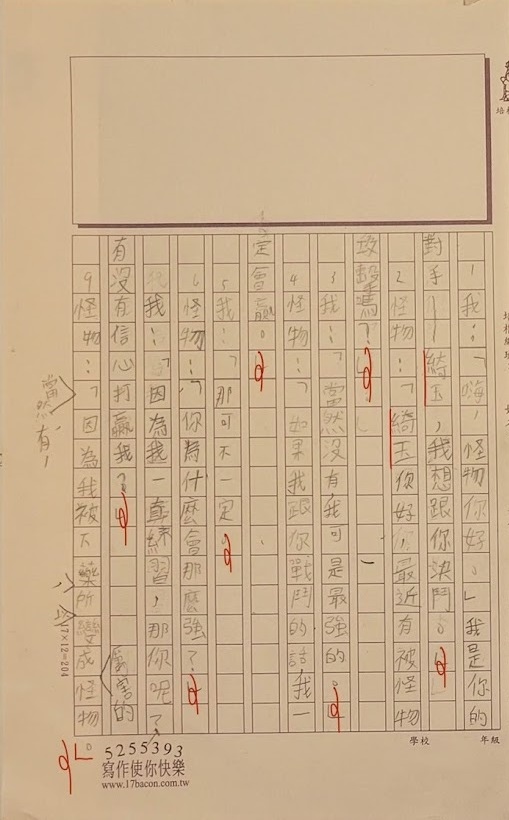 1我：「嗨，怪物你好。」我是你的
對手——綺玉，我想跟你決鬥。」
2怪物：「綺玉你好，最近有被怪物
攻擊嗎？」
3我：「當然沒有我可是最強的。」
4怪物：「如果我跟你戰鬥的話，我一
定會贏。」
5我：「那可不一定。」
6怪物：「你為什麼會那麼強？」
我：「因為我一直練習，那你呢？
有沒有信心打贏我？」
厲害的
9怪物：「因為我被下藥所變成怪物。」
當然有！
17×12=204
5255393
寫作使你快樂
www.17bacon.com.tw
學校
年級